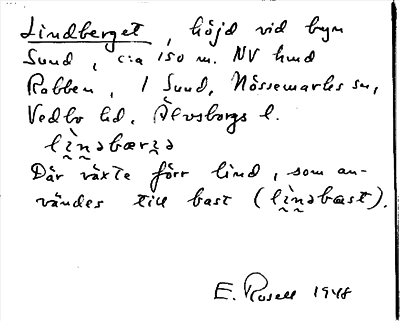 Lindberget, höjd vid byn
Sund, c:a 150 m. NV hmd
Robben, i Sund, Nössemarks sn,
Vedbo hd, Älvsborgs l.
lìnəbærɜə
Där växte förr lind, som an-
vändes till bast (lìnəbast).
E. Rosell 1948